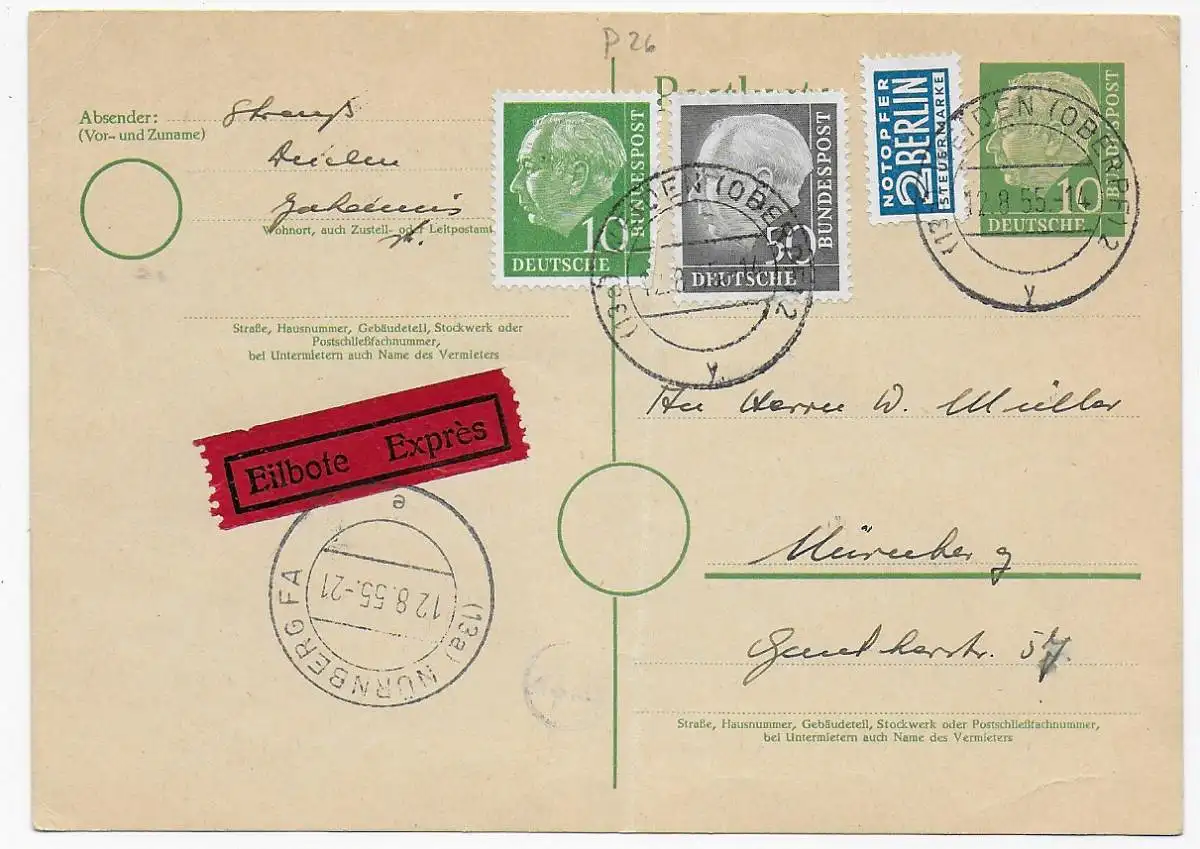 P 26
Absender:
(Vor- und Zuname)
Strauß
Weiden
Wohnort, auch Zustell- oder Leitpostamt
Straße, Hausnummer, Gebäudeteil, Stockwerk oder
Postschließfachnummer,
bei Untermietern auch Name des Vermieters
Postkarte
10
BUNDESPOST
DEUTSCHE
50
BUNDESPOST
DEUTSCHE
NOTOPFER
2 BERLIN
STEUERMARKE
10
BUNDESPOST
DEUTSCHE
WEIDEN (OBERPF) 2
12.8.55.-14
y
WEIDEN (OBERPF) 2
12.8.55.-14
y
Eilbote Exprès
(13a) NÜRNBERG FA
12.8.55.-21
e
An Herrn W. Müller
Nürnberg
Guntherstr. 57.
Straße, Hausnummer, Gebäudeteil, Stockwerk oder Postschließfachnummer,
bei Untermietern auch Name des Vermieters